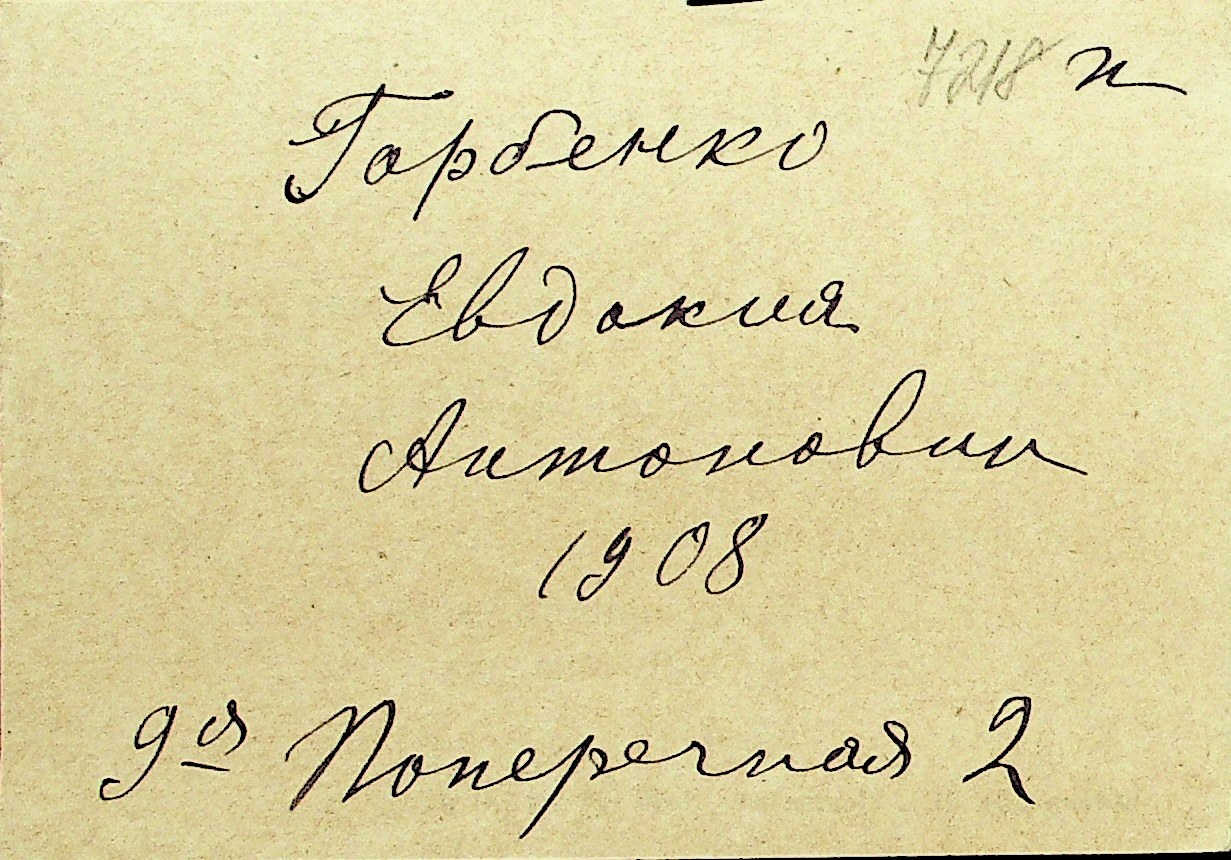 7218 п
Горбенко
Евдокия
Антоновн
1908
9ая Поперечная 2